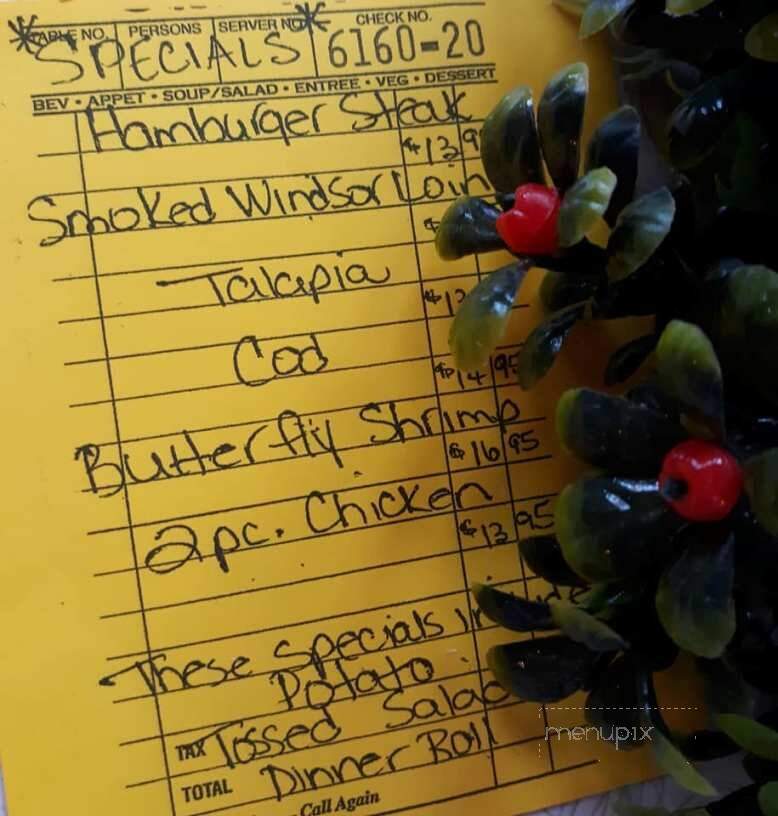 TABLE NO. PERSONS SERVER NO. CHECK NO.
* SPECIALS * 6160-20
BEV • APPET • SOUP/SALAD • ENTREE • VEG • DESSERT
Hamburger Steak
$13 9
Smoked Windsor Loin
$
Talapia
$1
Cod
$14 95
Butterfly Shrimp
$16 95
2pc. Chicken
$13 95
These Specials
Potato
TAX Tossed Salad
TOTAL Dinner Roll
Call Again
menupix